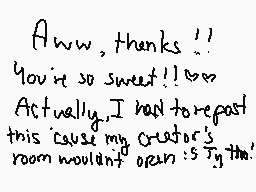 Aww, thanks!!
You're so sweet!!♡♡
Actually, I had to repost
this 'cause my creator's
room wouldn't open :S Ty tho!